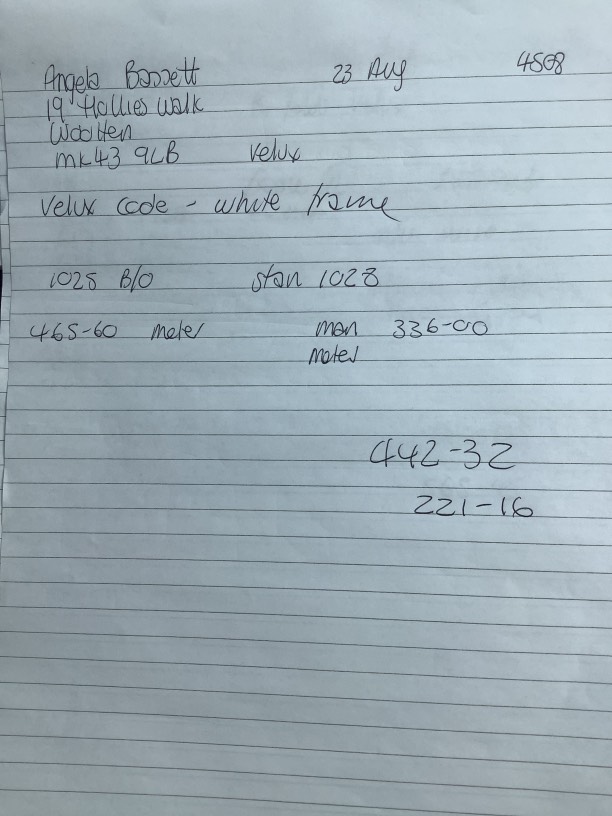 Angela Bassett 23 Aug 4508
19 Hollies Walk
Wootten
MK43 9LB Velux
Velux code - white frame
1025 B/O stan 1028
465-60 motor man 336-00
motor
442-32
221-16